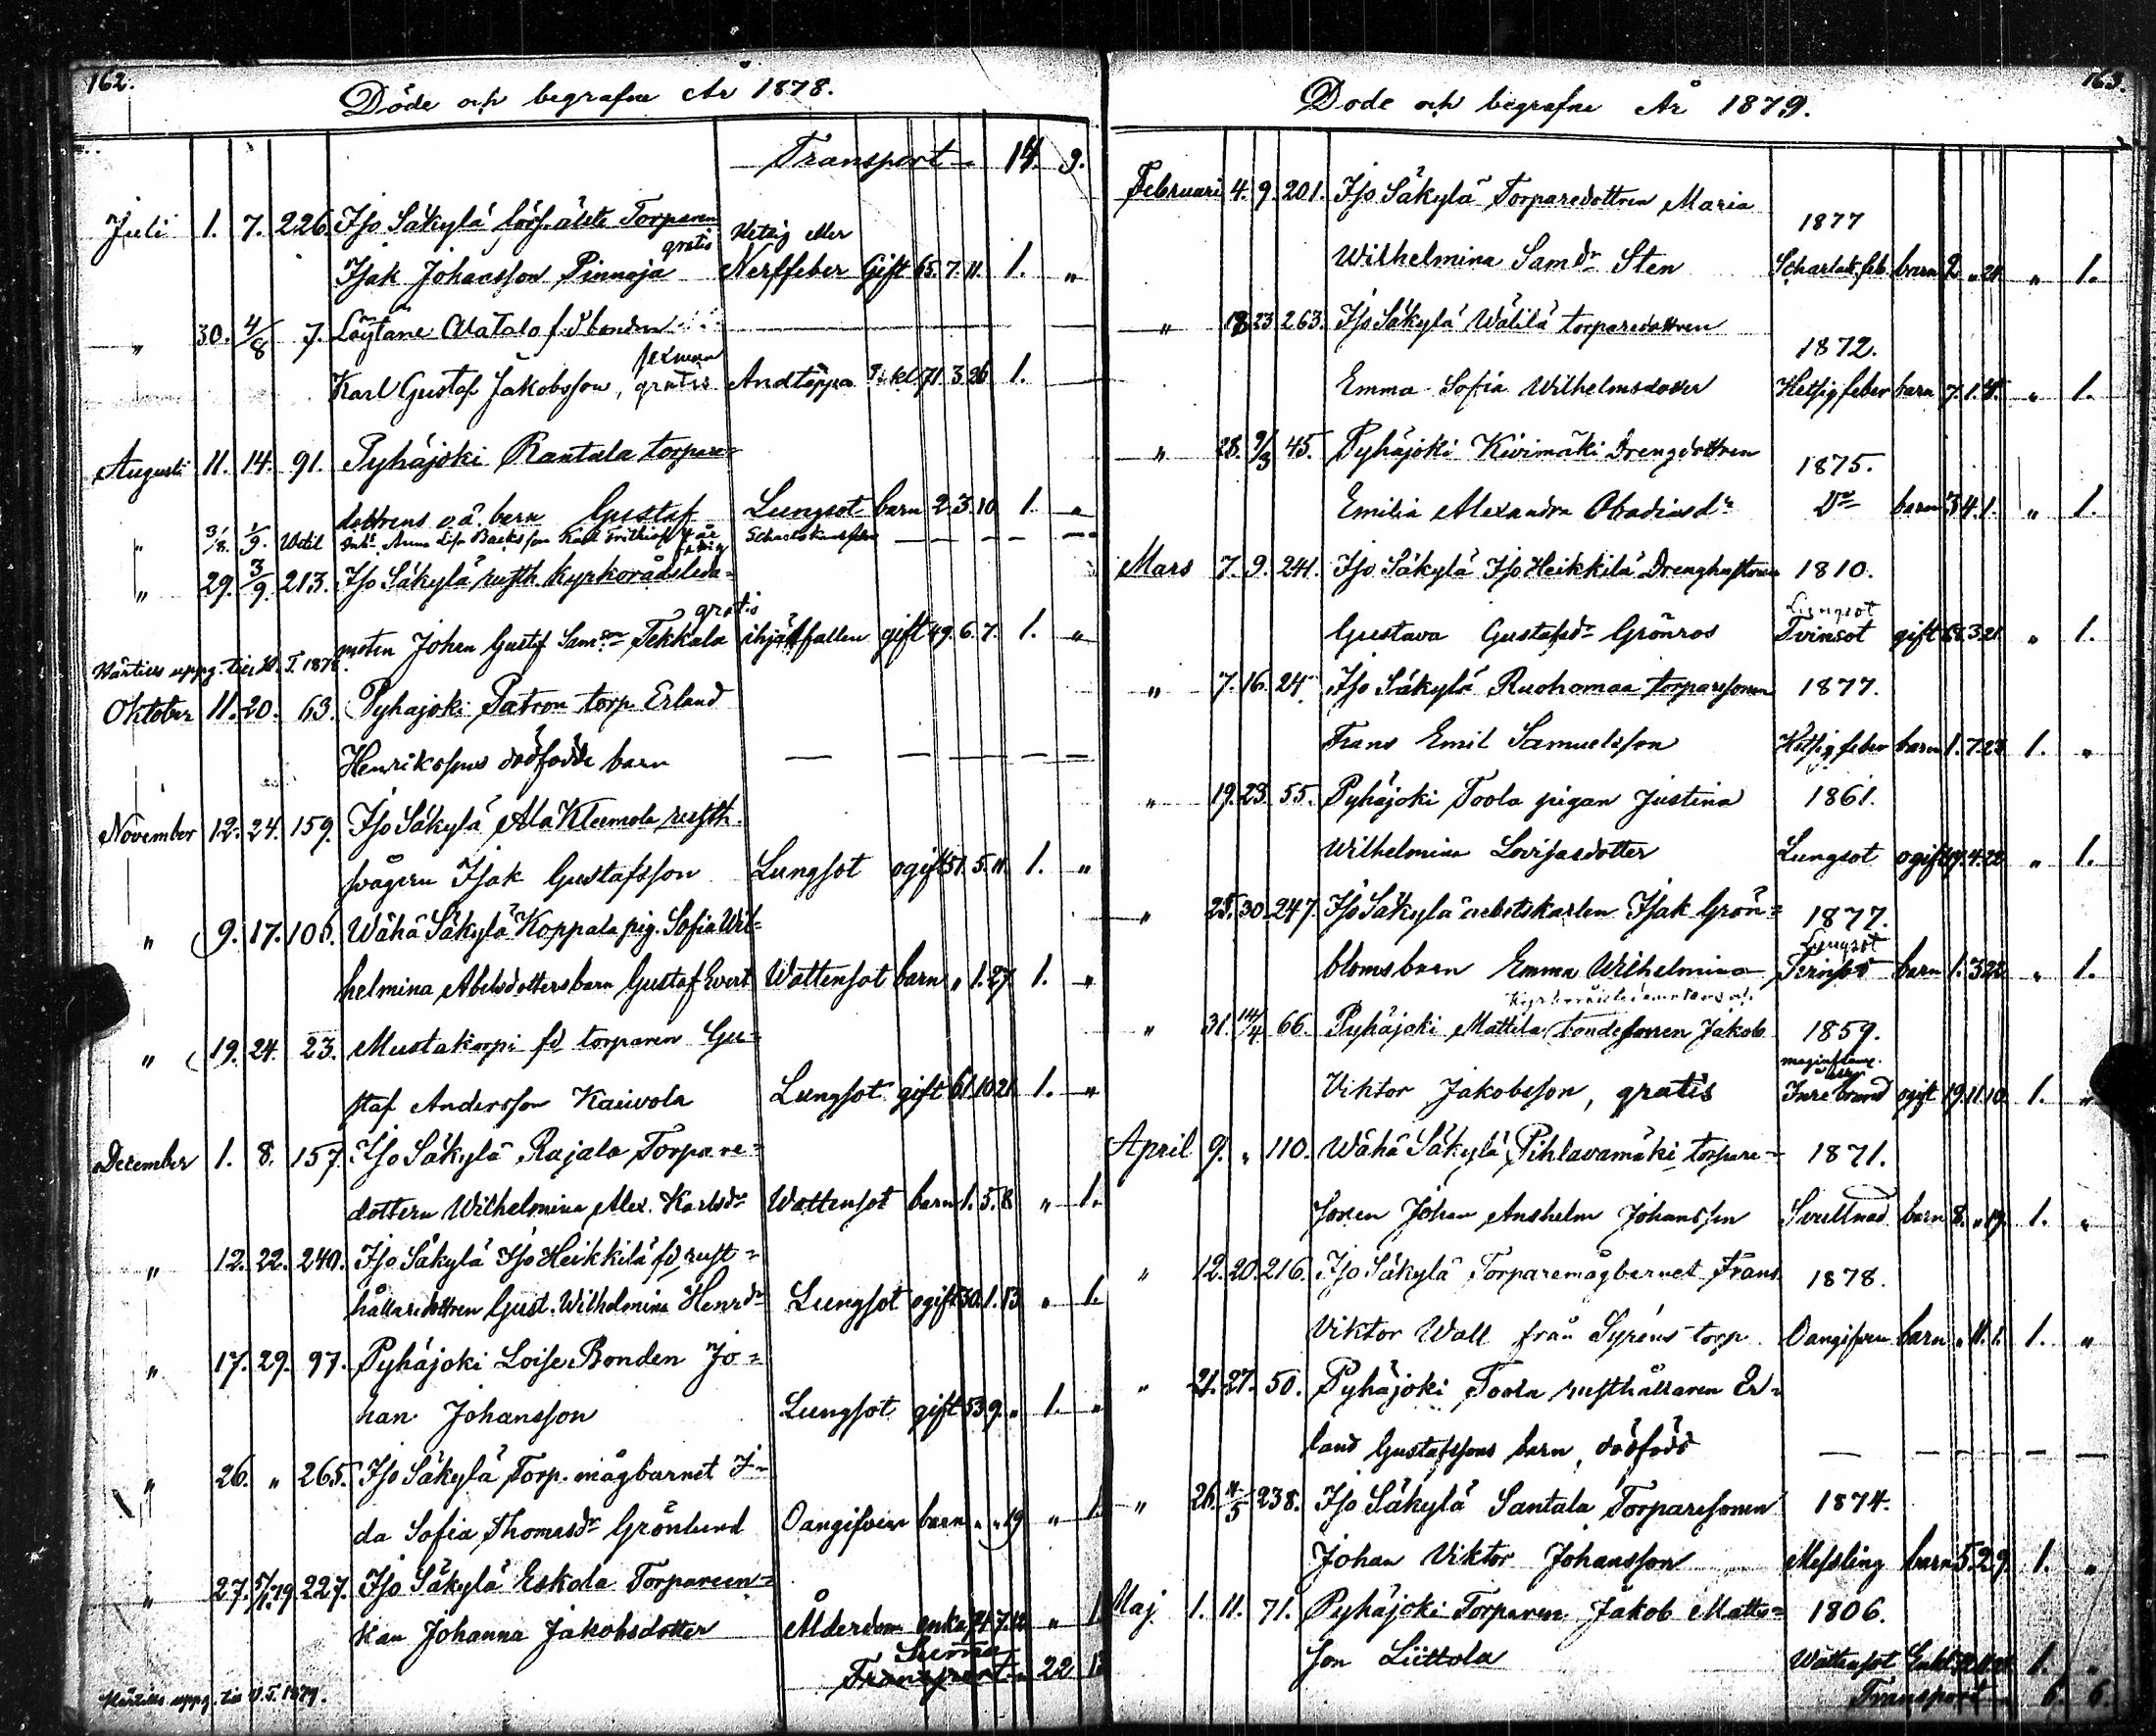 162.
Döde och begrafne År 1878.
Transport 14. 9.
Juli 1. 7. 226. Iso Säkylä förs. älste Torparen
gratis Hetsig eller
Isak Johansson Pinnaja Nerffeber Gift 65. 7. 11. 1. „
„ 30. 4/8 7. Löytane Alatalo f.d. bonden
Karl Gustaf Jakobsson, gratis Andtäppa Enkl. 71. 3. 26. 1.
Augusti 11. 14. 91. Pyhäjoki Rantala torpare-
dottrens o.ä. barn Gustaf Lungsot barn 2. 3. 10. 1. „
„ 31/8. 1/9. Anna Lisa Karl 4 år
„ 29. 3/9. 213. Iso Säkylä rusth. kyrkorådsleda-
gratis
moten Johan Gustaf Samson Tekkala ihjälfallen gift 49. 6. 7. 1. „
uppg. till 1878.
Oktober 11. 20. 63. Pyhäjoki Patron torp. Erland
Henrikssons dödfödde barn
November 12. 24. 159. Iso Säkylä Ala Kleemola rusth.
svågern Isak Gustafsson Lungsot ogift 51. 5. 11. 1. „
„ 9. 17. 106. Wähä Säkylä Koppala pig. Sofia Wil-
helmina Abelsdotters barn Gustaf Evert Wattensot barn „ 1. 27. 1. „
„ 19. 24. 23. Mustakorpi fd torparen Gu-
staf Andersson Kaiivola Lungsot gift 61. 10. 21. 1. „
December 1. 8. 157. Iso Säkylä Rajala Torpare-
dottern Wilhelmina Alex. Karlsdr Wattensot barn 1. 5. 8. „ 1.
„ 12. 22. 240. Iso Säkylä Iso Heikkilä fd rust-
hållaredottren Gust. Wilhelmina Henrdr Lungsot ogift 30. 1. 13. „ 1.
„ 17. 29. 97. Pyhäjoki Loise Bonden Jo-
han Johansson Lungsot gift 53. 9. „ 1. „
„ 26. „ 265. Iso Säkylä Torp. mågbarnet I-
da Sofia Thomasdr Grönlund Oangifven barn „ „ 19 „ 1.
„ 27. 5/1.79. 227. Iso Säkylä Eskola Torpareen-
kan Johanna Jakobsdotter Ålderdom enka 7. 12 „ 1
Summa
Transport 22 13
uppg. till 1879.
163.
Döde och begrafne År 1879.
Februari 4. 9. 201. Iso Säkylä Torparedottren Maria
1877
Wilhelmina Samdr Sten Scharlak. feb. barn 2 „ 21 „ 1.
„ 18 23 263. Iso Säkylä Wälilä torparedottren
1872.
Emma Sofia Wilhelmsdotter Hetsigfeber barn 7. 1. „ 1.
„ 28. 9/3 45. Pyhäjoki Kivimäki Drengdottren
1875.
Emilia Alexandra Obadiasdr Do barn 3 4. 1. „ 1.
Mars 7. 9. 241. Iso Säkylä Iso Heikkilä Drenghustrun 1810.
Lungsot
Gustava Gustafsdr Grönros Tvinsot gift 68. 3. 21. „ 1.
„ 7. 16. 24. Iso Säkylä Ruohomaa torparesonen 1877.
Frans Emil Samuelsson Hetsigfeber barn 1. 7. 27 1. „
„ 19. 23. 55. Pyhäjoki Toola pigan Justina 1861.
Wilhelmina Lovisasdotter Lungsot ogift 17. 4. 22 „ 1.
„ 25. 30. 247. Iso Säkylä arbetskarlen Isak Grön- 1877.
Lungsot
bloms barn Emma Wilhelmina barn 1. 3. 22 „ 1.
„ 31. 14/4 66. Pyhäjoki Mattila bondesonen Jakob 1859.
Viktor Jakobsson, gratis Inre brand ogift 19. 11. 10. 1. „
April 9. „ 110. Wähä Säkylä Pihlavamäki torpare- 1871.
sonen Johan Anshelm Johansson Svullnad barn 8. „ 19. 1. „
„ 12. 20. 216. Iso Säkylä Torparemågbarnet Frans 1878.
Viktor Wall från Syréns torp Oangifven barn „ 11. 1. 1. „
„ 21. 27. 50. Pyhäjoki Toola rusthållaren Er-
land Gustafssons barn, dödfödd
„ 26. 4/5 238. Iso Säkylä Santala Torparesonen 1874.
Johan Viktor Johansson Messling barn 5. 2. 9. 1. „
Maj 1. 11. 71. Pyhäjoki Torparen Jakob Matts- 1806.
son Liittola Wattensot Enkl. 1. „
Transport 6. 6.